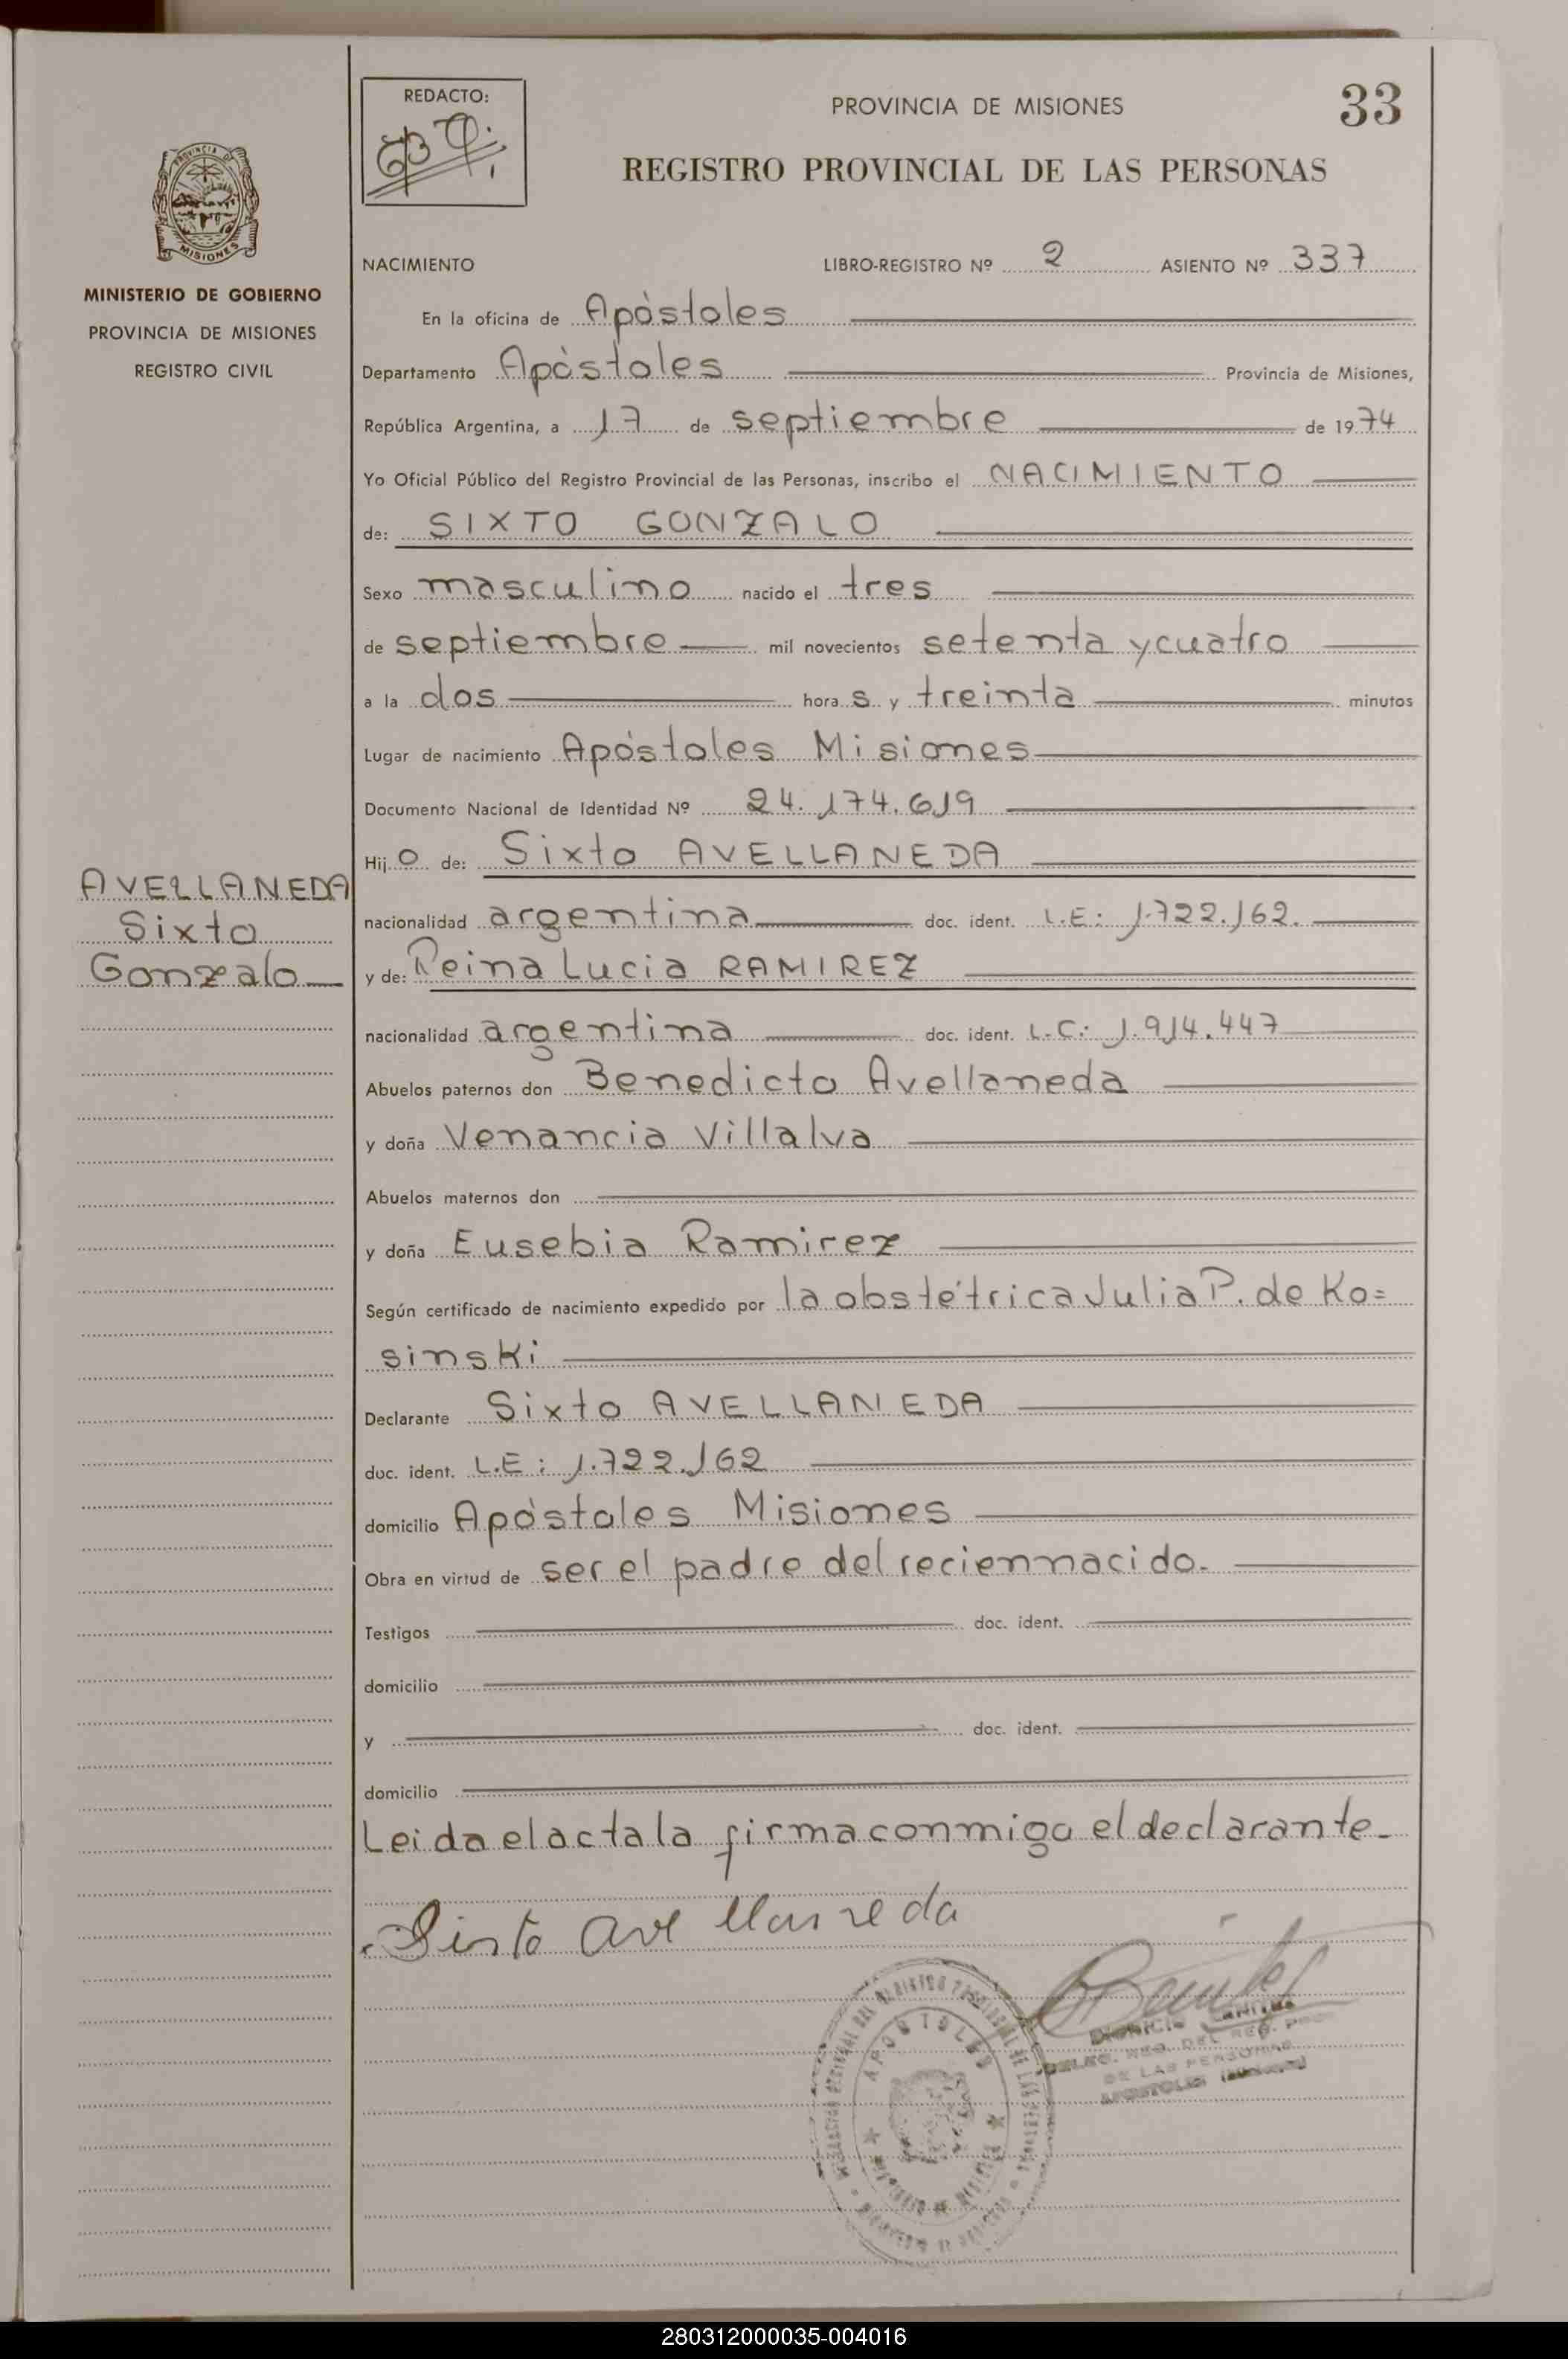 REDACTO:
PROVINCIA DE MISIONES
33
REGISTRO PROVINCIAL DE LAS PERSONAS
PROVINCIA DE
MISIONES
MINISTERIO DE GOBIERNO
PROVINCIA DE MISIONES
REGISTRO CIVIL
NACIMIENTO LIBRO-REGISTRO Nº 2 ASIENTO Nº 337
En la oficina de Apòstoles
Departamento Apòstoles Provincia de Misiones,
República Argentina, a 17 de septiembre de 1974
Yo Oficial Público del Registro Provincial de las Personas, inscribo el NACIMIENTO
de: SIXTO GONZALO
Sexo masculino nacido el tres
de septiembre mil novecientos setenta y cuatro
a la dos hora s y treinta minutos
Lugar de nacimiento Apóstoles Misiones
Documento Nacional de Identidad Nº 24.174.619
Hij o de: Sixto AVELLANEDA
AVELLANEDA
Sixto
Gonzalo
nacionalidad argentina doc. ident. L.E: 1.722.162.
y de: Reina Lucia RAMIREZ
nacionalidad argentina doc. ident. L.C: 1.914.447
Abuelos paternos don Benedicto Avellaneda
y doña Venancia Villalva
Abuelos maternos don
y doña Eusebia Ramirez
Según certificado de nacimiento expedido por la obstétrica Julia P. de Ko=
sinski
Declarante Sixto AVELLANEDA
doc. ident. L.E: 1.722.162
domicilio Apòstoles Misiones
Obra en virtud de ser el padre del recien nacido.
Testigos doc. ident.
domicilio
y doc. ident.
domicilio
Leida el acta la firma conmigo el declarante
Sixto Avellaneda
APOSTOLES
DELEG. REG. DEL REG. PROV.
DE LAS PERSONAS
APOSTOLES (Misiones)
280312000035-004016